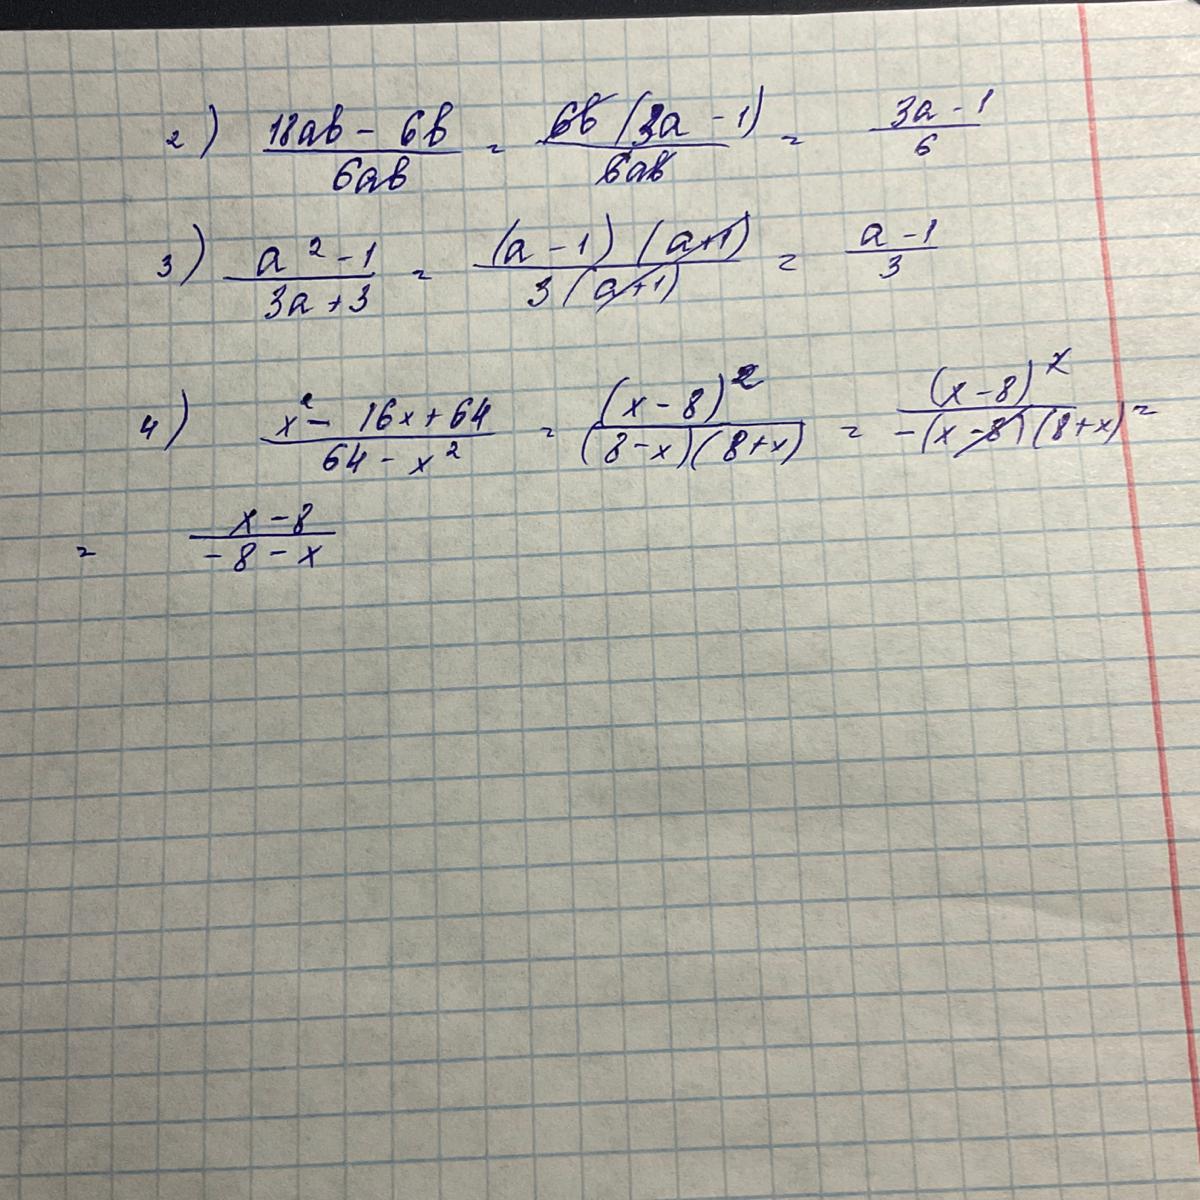 2) (18ab - 6b)/(6ab) = (6b(3a - 1))/(6ab) = (3a - 1)/6
3) (a² - 1)/(3a + 3) = ((a - 1)(a + 1))/(3(a + 1)) = (a - 1)/3
4) (x² - 16x + 64)/(64 - x²) = (x - 8)²/((8 - x)(8 + x)) = (x - 8)²/(-(x - 8)(8 + x)) =
= (x - 8)/(-8 - x)